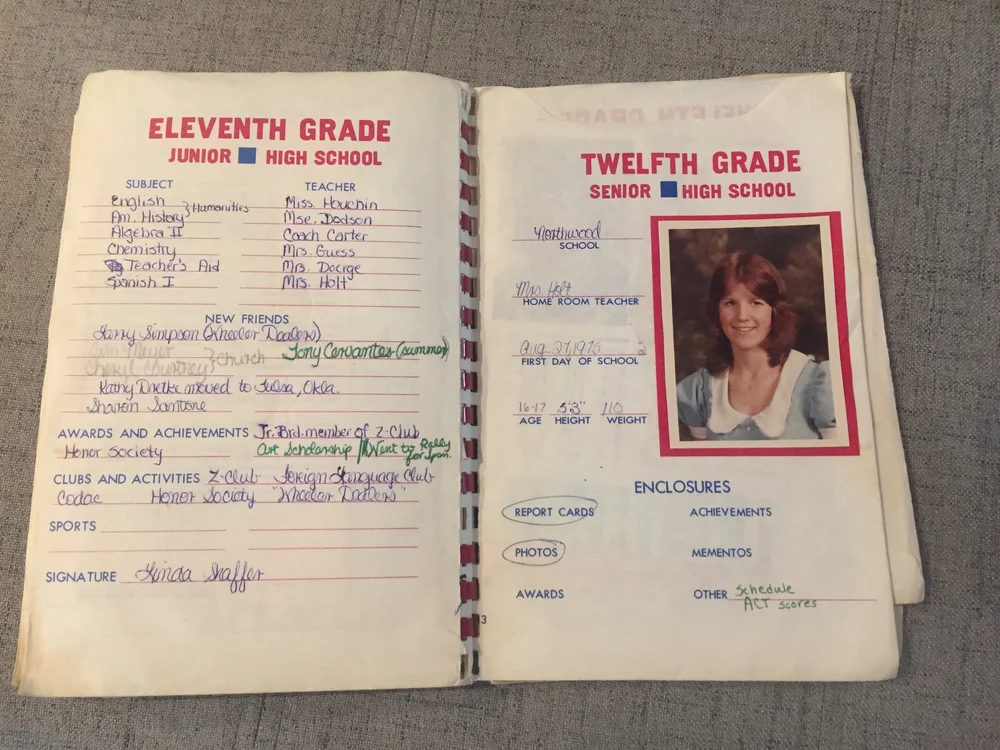 ELEVENTH GRADE
JUNIOR HIGH SCHOOL
SUBJECT TEACHER
English } Humanities Miss. Houchin
Am. History Mse. Dodson
Algebra II Coach Carter
Chemistry Mrs. Guess
Teacher's Aid Mrs. Docrge
Spanish I Mrs. Holt
NEW FRIENDS
Larry Simpson (Wheeler Dealers)
Meyer } Church Tony Cervantes (summer)
Cheryl Courtney
Kathy Dretke moved to Tulsa, Okla.
Sharon Santone
AWARDS AND ACHIEVEMENTS Jr. Brd. member of Z-Club
Honor Society Art Scholarship / Went to Rally for Span.
CLUBS AND ACTIVITIES Z-Club Foreign Language Club
Codac Honor Society "Wheeler Dealers"
SPORTS
SIGNATURE Linda Shaffer
3
TWELFTH GRADE
SENIOR HIGH SCHOOL
Northwood
SCHOOL
Mrs. Holt
HOME ROOM TEACHER
Aug. 27, 1975
FIRST DAY OF SCHOOL
16-17 5'3" 110
AGE HEIGHT WEIGHT
ENCLOSURES
REPORT CARDS ACHIEVEMENTS
PHOTOS MEMENTOS
AWARDS OTHER Schedule
ACT scores